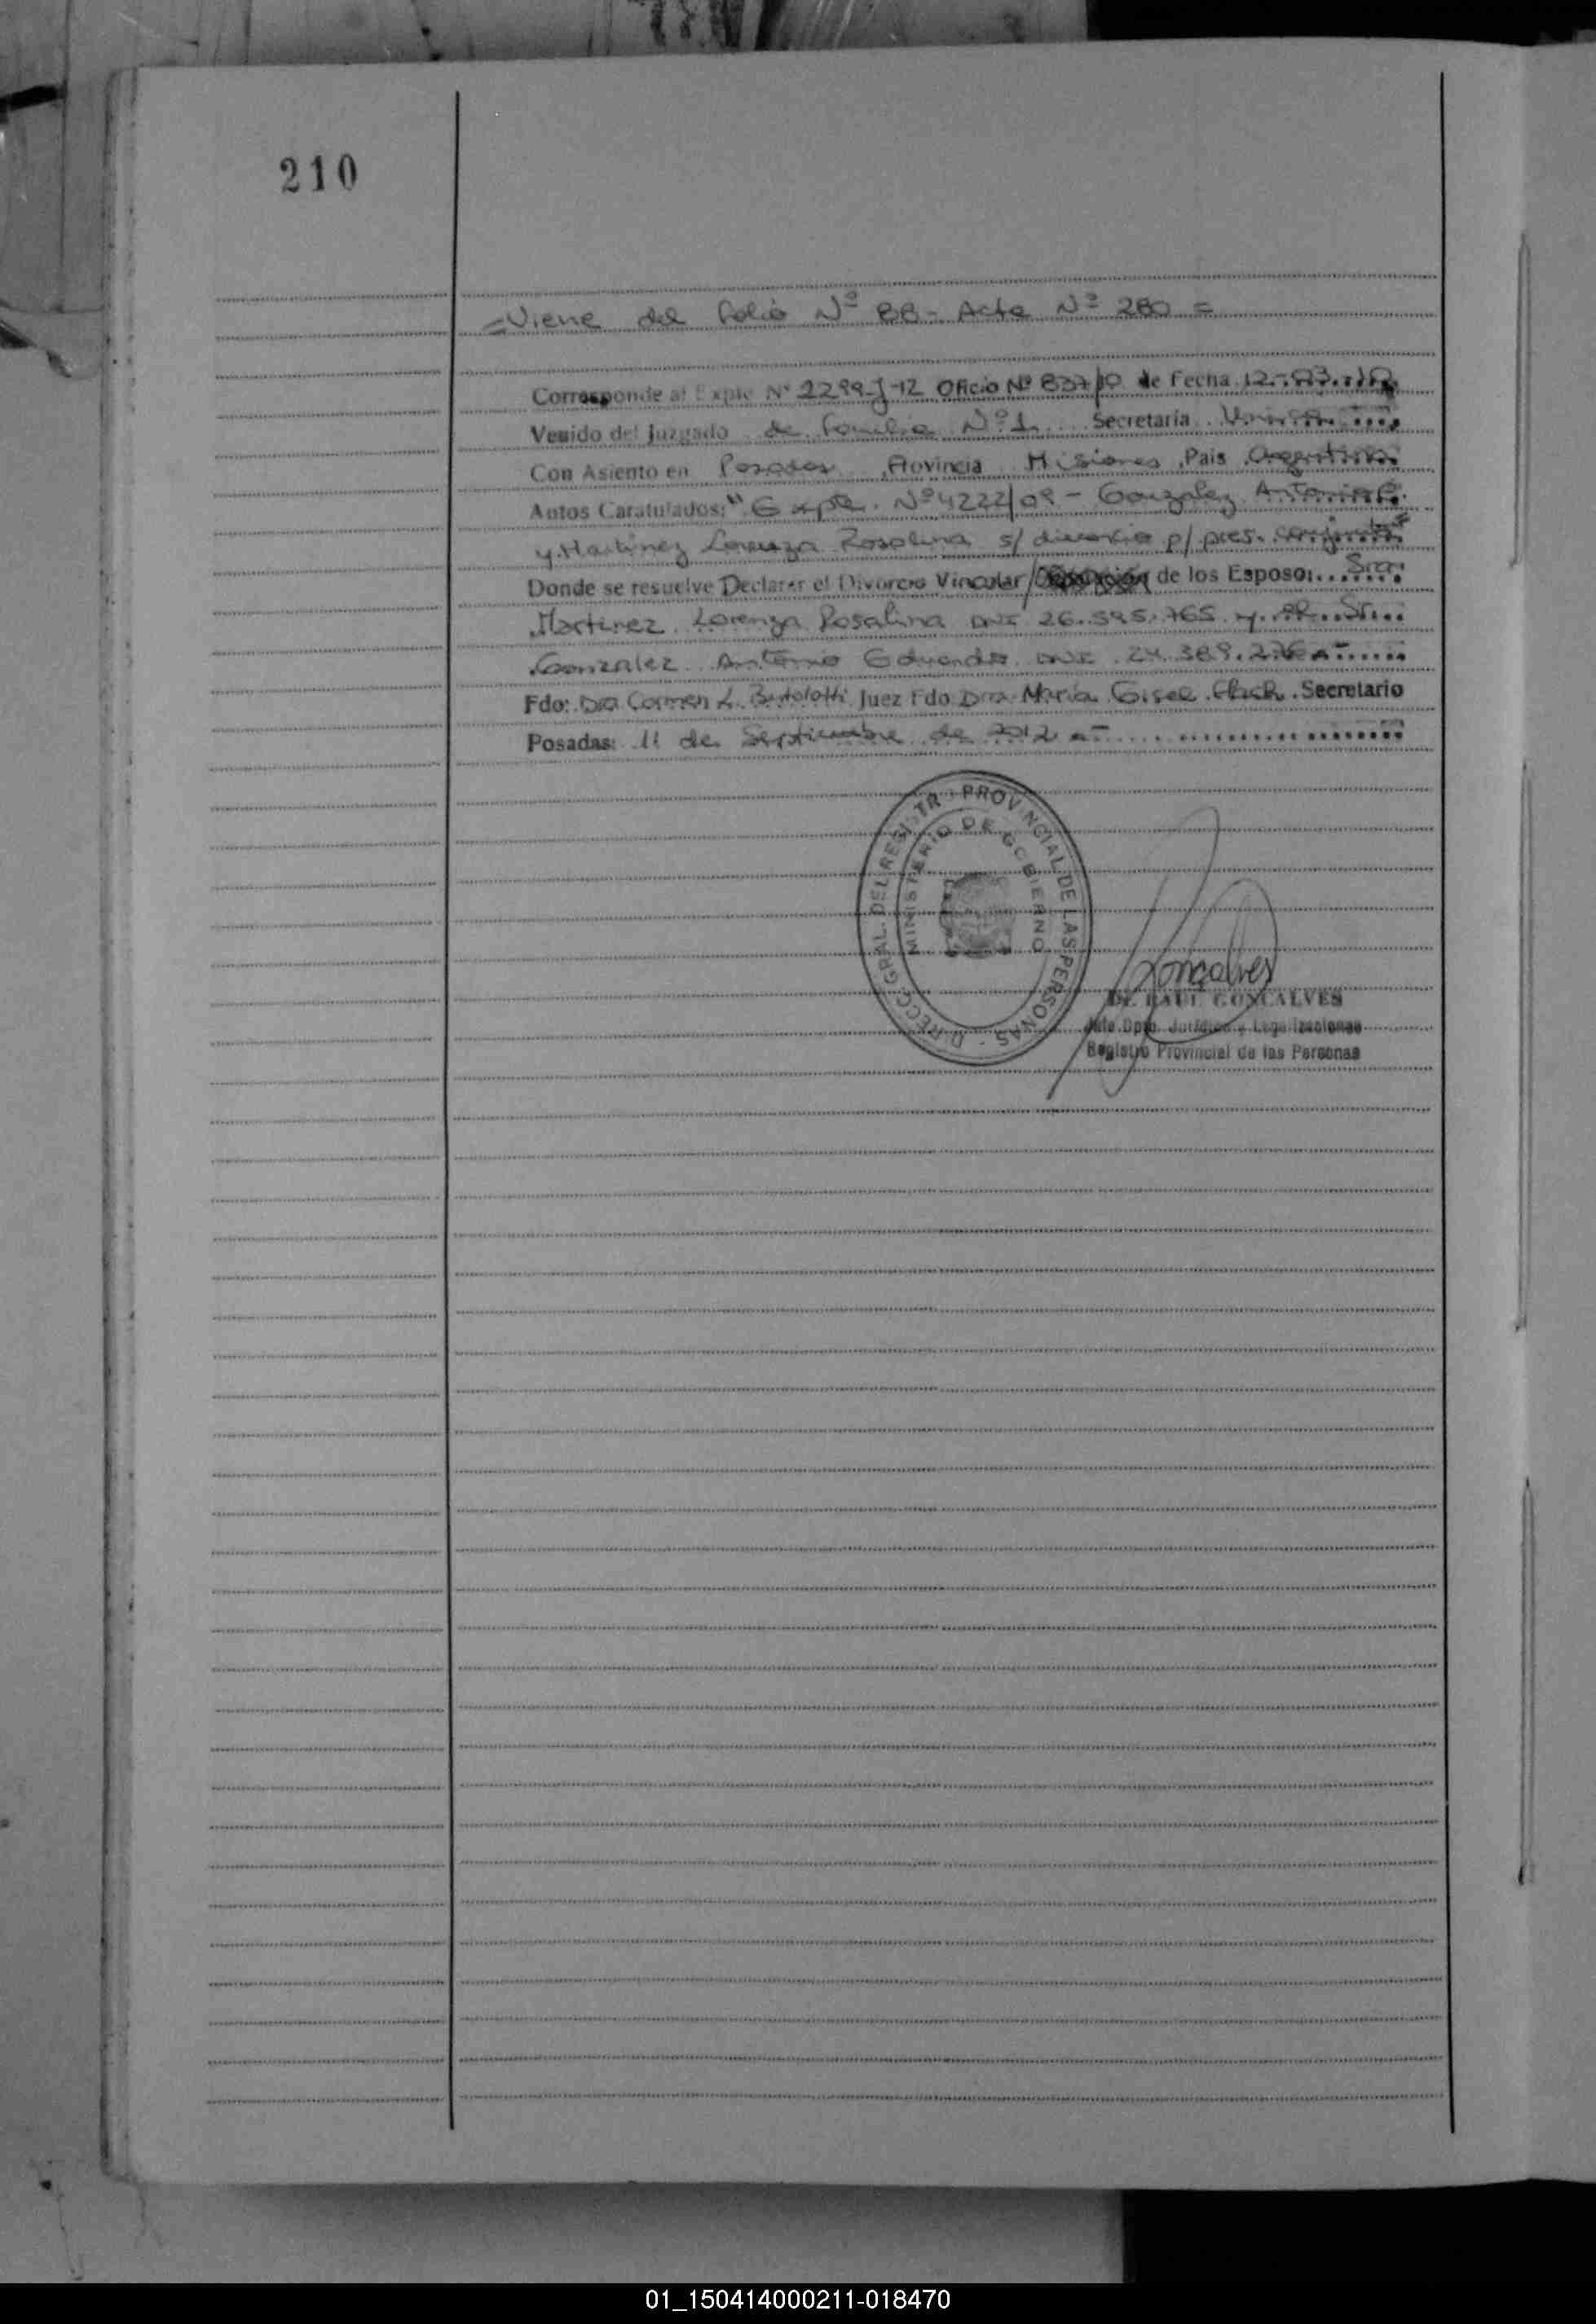 210
=Viene del folio Nº 88- Acta Nº 280 =
Corresponde al Expte Nº 2299-J-12 Oficio Nº 837/10 de Fecha 12-03-10
Venido del Juzgado de Familia Nº 1 Secretaría Unica
Con Asiento en Posadas Provincia Misiones País Argentina
Autos Caratulados: "Expte. Nº 4222/09 - Gonzalez Antonio E.
y Martinez Lorenza Rosalina s/ divorcio p/ pres. conjunta"
Donde se resuelve Declarar el Divorcio Vincular/ de los Esposos Sra.
Martinez Lorenza Rosalina DNI 26.595.765 y el Sr.
Gonzalez Antonio Eduardo DNI 24.389.276
Fdo: Dra Carmen L. Bertolotti Juez Fdo Dra María Gisel Secretario
Posadas: 11 de Septiembre de 2012
DIRECC. GRAL. DEL REGISTRO PROVINCIAL DE LAS PERSONAS
MINISTERIO DE GOBIERNO
Gonçalves
Dr. RAUL GONCALVES
Jefe Dpto. Jurídico y Legalizaciones
Registro Provincial de las Personas
01_150414000211-018470